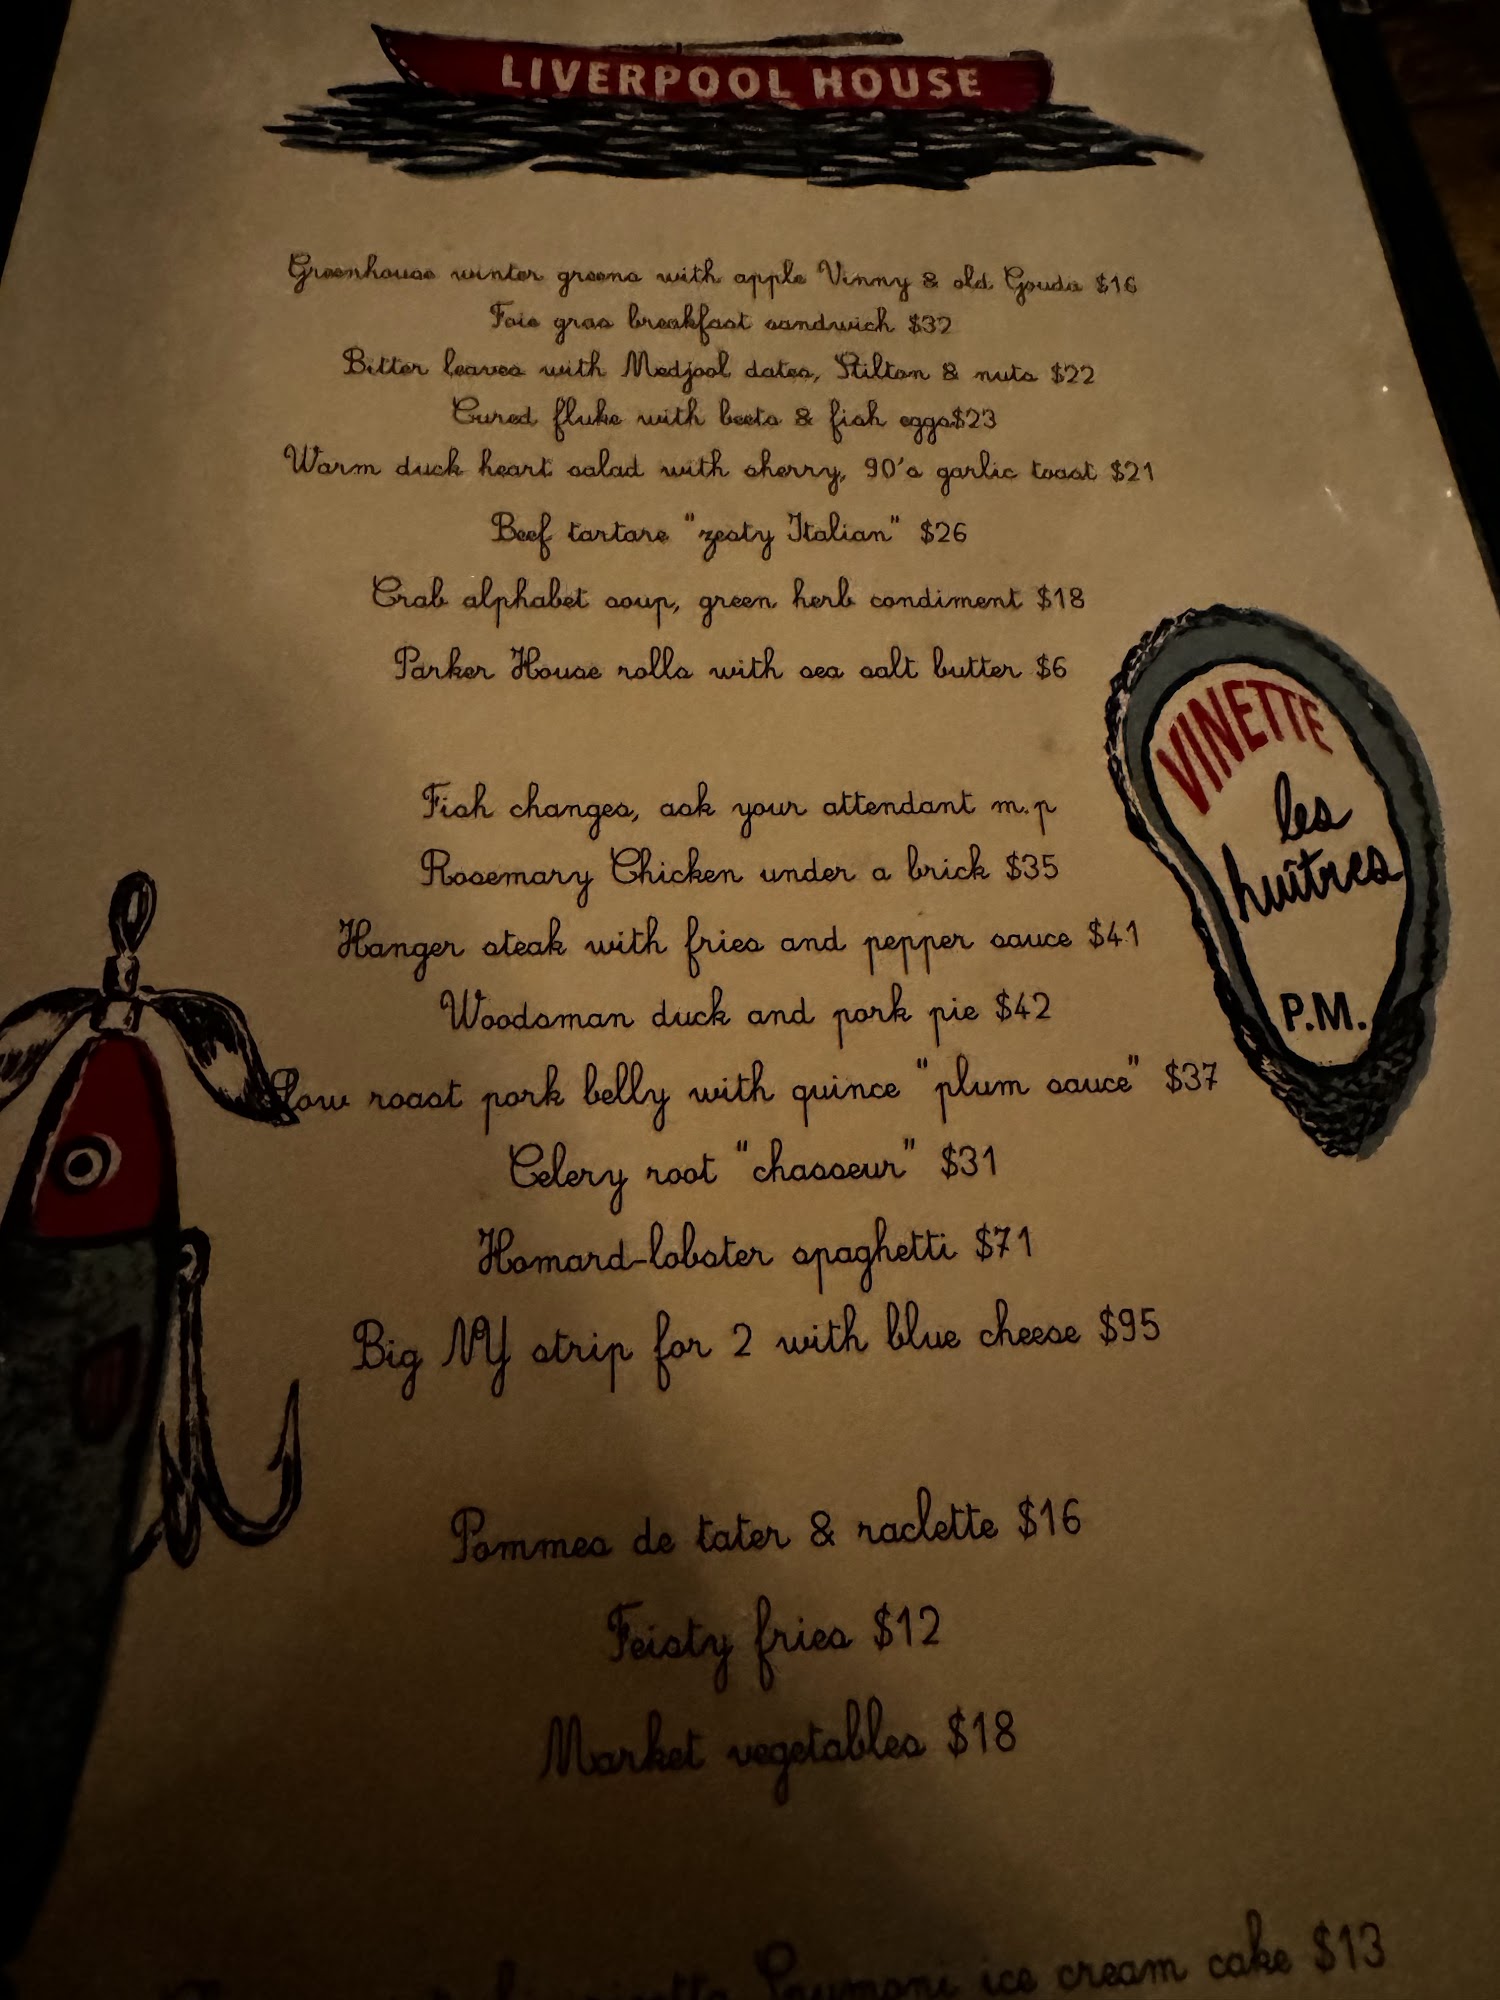 LIVERPOOL HOUSE
Greenhouse winter greens with apple Vinny & old Gouda $16
Foie gras breakfast sandwich $32
Bitter leaves with Medjool dates, Stilton & nuts $22
Cured fluke with beets & fish eggs$23
Warm duck heart salad with sherry, 90's garlic toast $21
Beef tartare "zesty Italian" $26
Crab alphabet soup, green herb condiment $18
Parker House rolls with sea salt butter $6
VINETTE
les
huîtres
P.M.
Fish changes, ask your attendant m.p
Rosemary Chicken under a brick $35
Hanger steak with fries and pepper sauce $41
Woodsman duck and pork pie $42
Slow roast pork belly with quince "plum sauce" $37
Celery root "chasseur" $31
Homard-lobster spaghetti $71
Big NY strip for 2 with blue cheese $95
Pommes de tater & raclette $16
Feisty fries $12
Market vegetables $18
ice cream cake $13